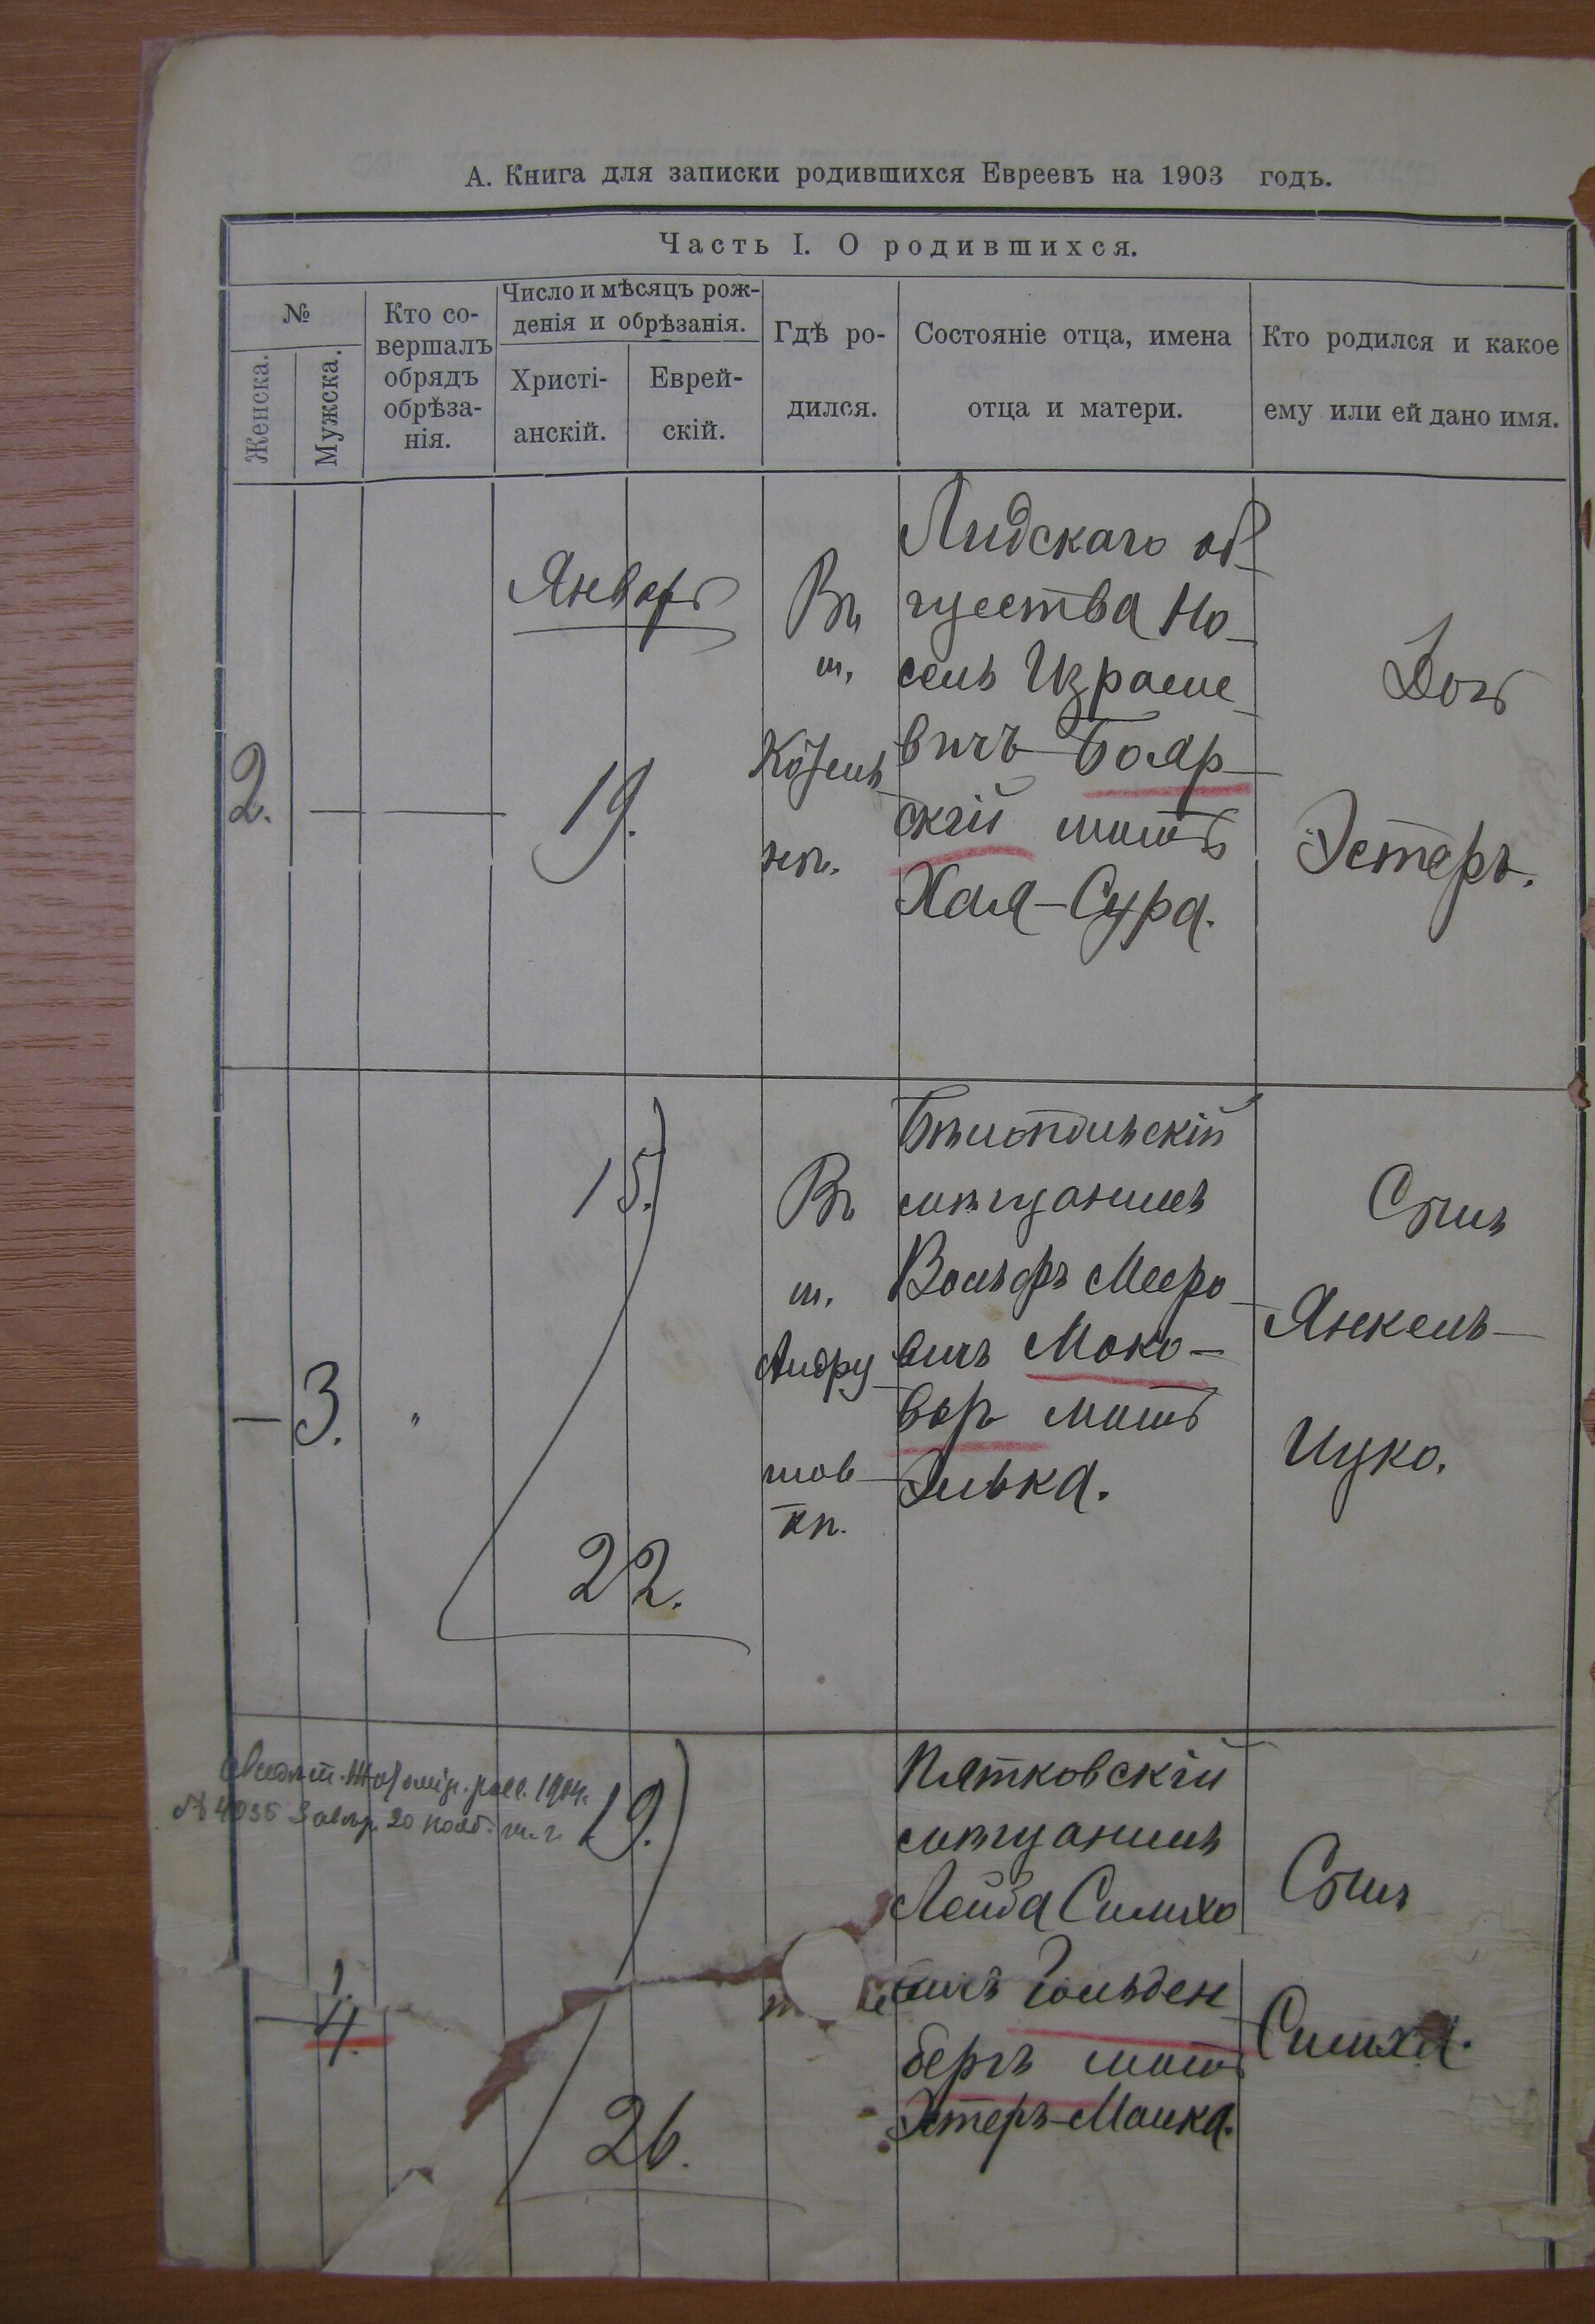 А. Книга для записки родившихся Евреевъ на 1903 годъ.
Часть I. О родившихся.
№
Женска.
Мужска.
Кто со-
вершалъ
обрядъ
обрѣза-
нія.
Число и мѣсяцъ рож-
денія и обрѣзанія.
Христі-
анскій.
Еврей-
скій.
Гдѣ ро-
дился.
Состояніе отца, имена
отца и матери.
Кто родился и какое
ему или ей дано имя.
2.
Январь
19.
Въ
м.
Лидскаго об
щества Но
сель Израиле
вичъ Бояр
скій мать
Хая-Сура.
Дочь
Эстеръ.
3.
"
15.
22.
Въ
м.
Андру
шов
кѣ.
мѣщанинъ
Вольфъ Мееро
вичъ Моко-
вор мать
Элька.
Сынъ
Янкель
Ицко.
№ 4035 20 нояб. т. г.
1.
4.
19.
26.
Пятковскій
мѣщанинъ
Лейба Симхо
вичъ Гольден
бергъ мать
Эстеръ-Малка.
Сынъ
Симха.